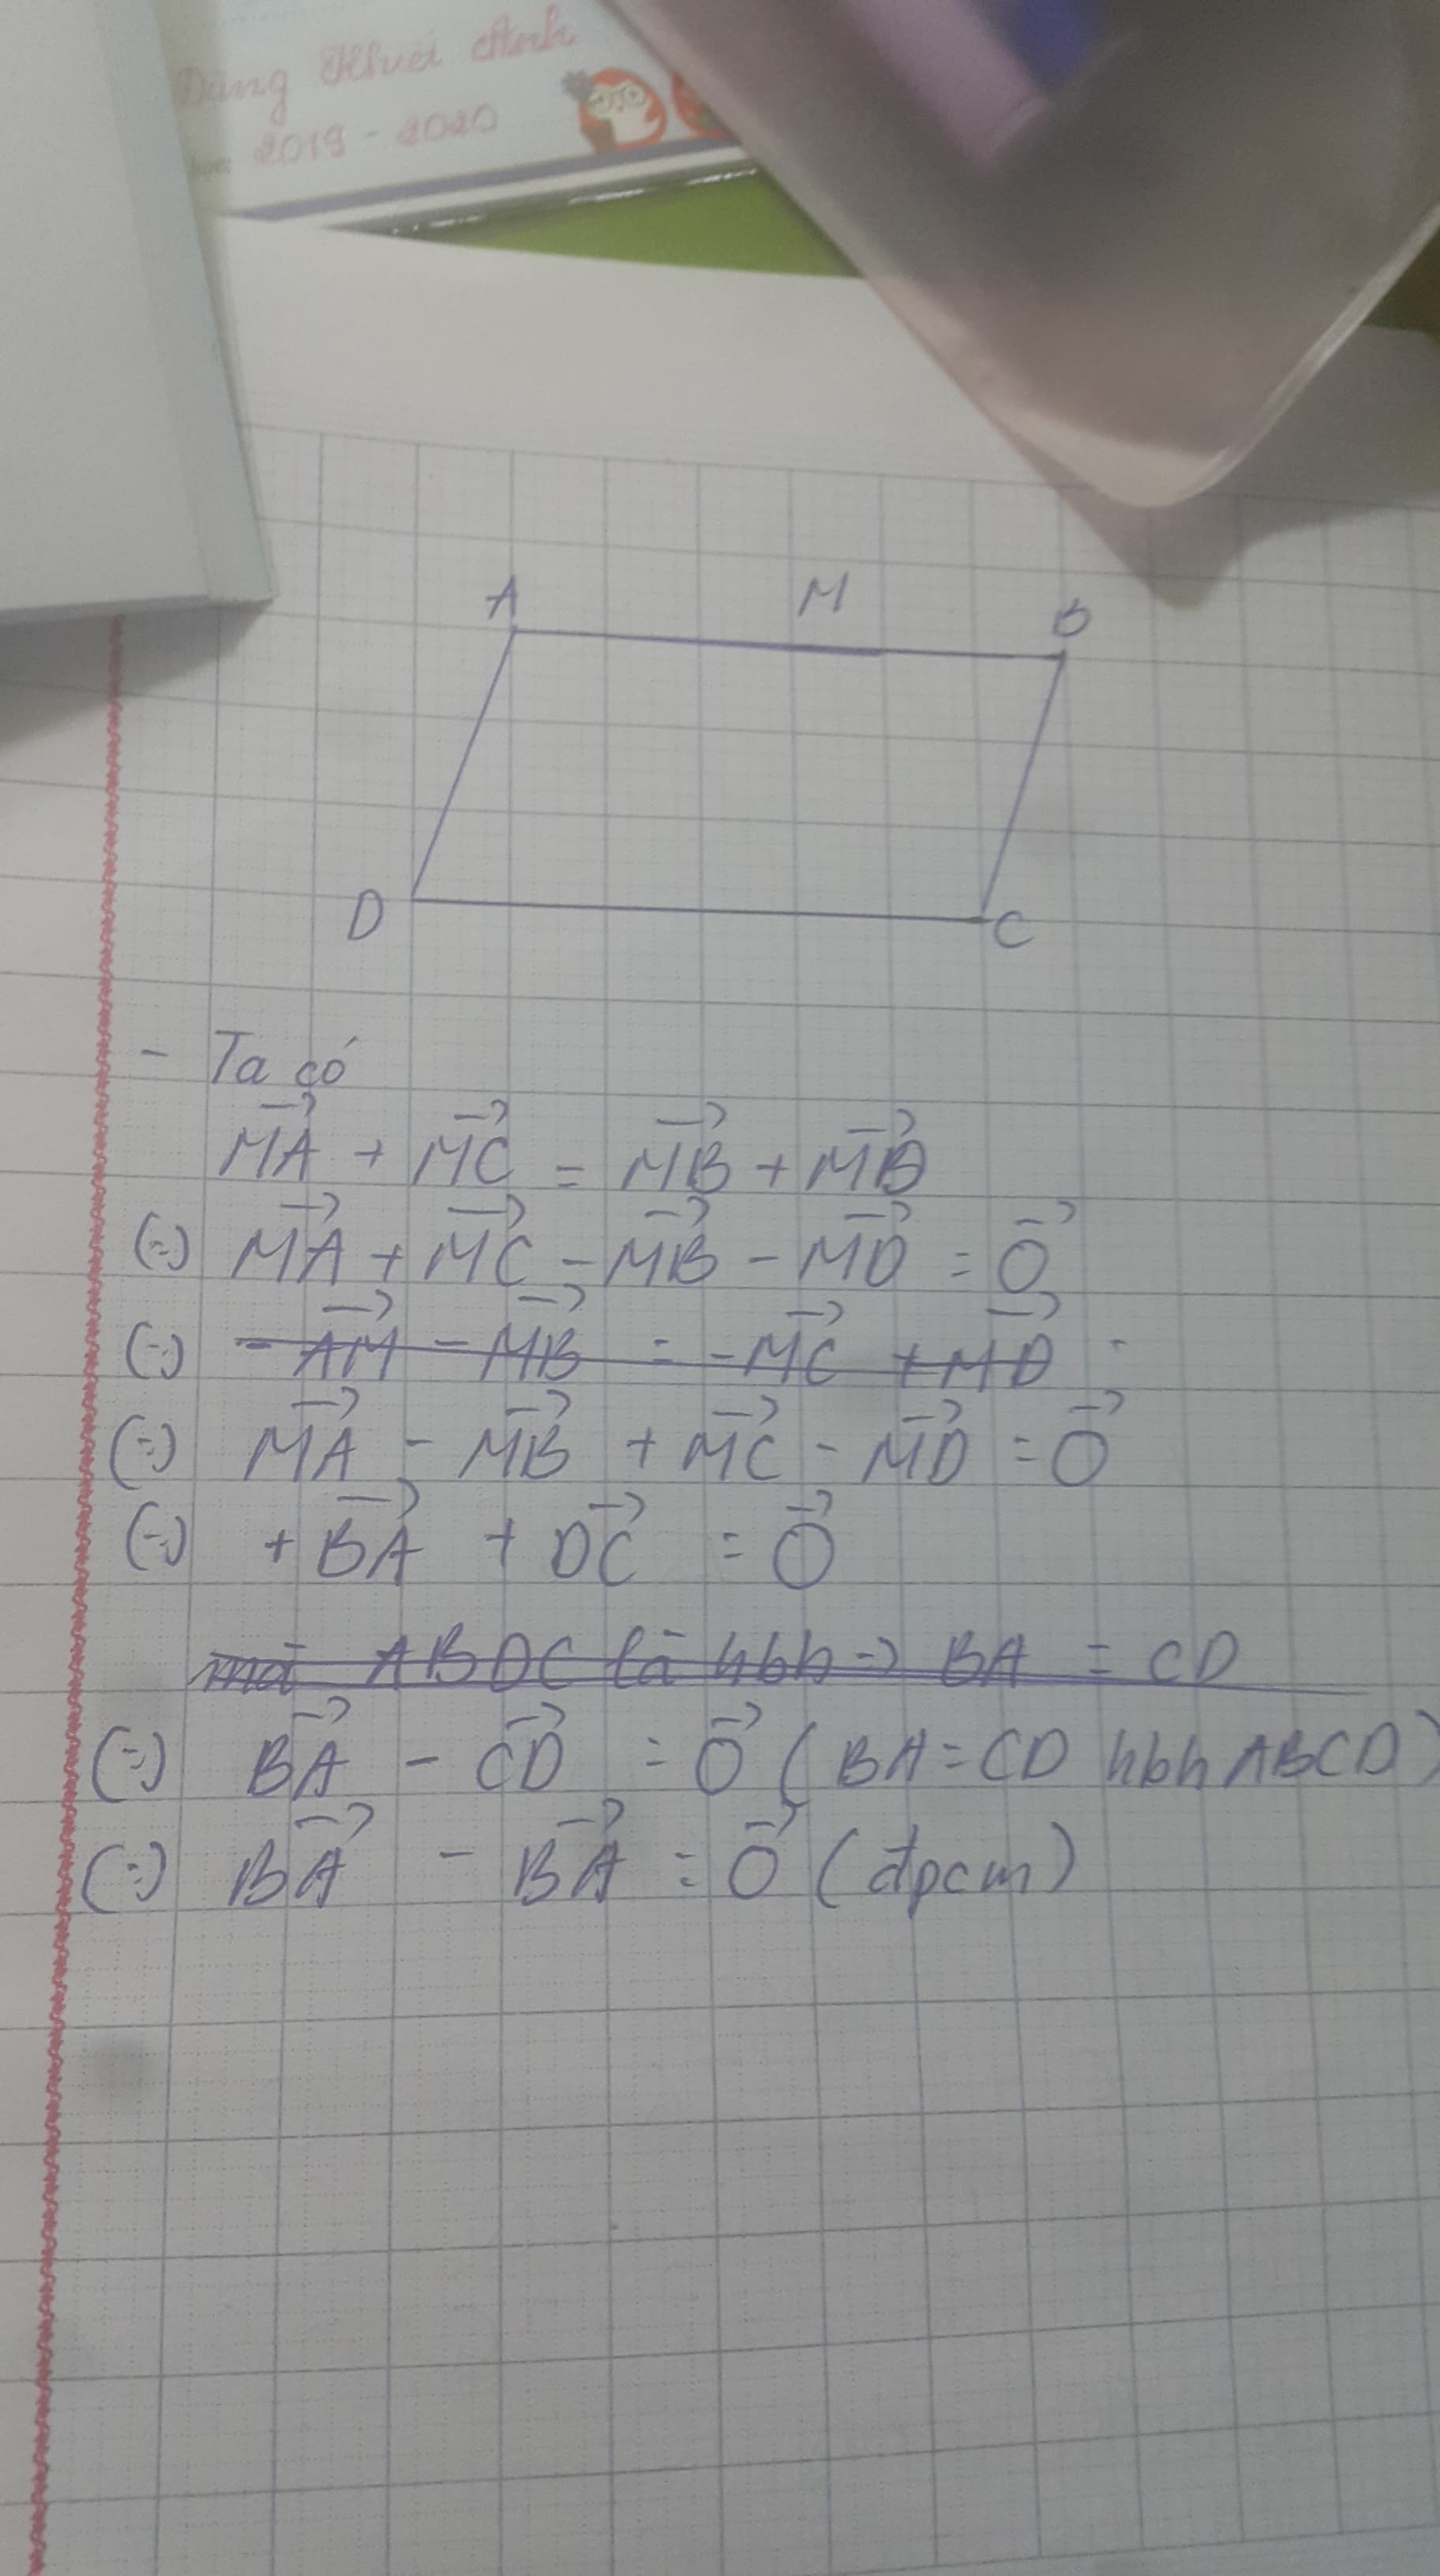 Đặng
2019 - 2020
A M B
D C
- Ta có
$\overrightarrow{MA} + \overrightarrow{MC} = \overrightarrow{MB} + \overrightarrow{MD}$
(=) $\overrightarrow{MA} + \overrightarrow{MC} - \overrightarrow{MB} - \overrightarrow{MD} = \overrightarrow{O}$
(=) $- \overrightarrow{AM} - \overrightarrow{MB} = - \overrightarrow{MC} + \overrightarrow{MD}$
(=) $\overrightarrow{MA} - \overrightarrow{MB} + \overrightarrow{MC} - \overrightarrow{MD} = \overrightarrow{O}$
(=) $+ \overrightarrow{BA} + \overrightarrow{DC} = \overrightarrow{O}$
mà ABDC là hbh → BA = CD
(=) $\overrightarrow{BA} - \overrightarrow{CD} = \overrightarrow{O}$ (BA = CD hbh ABCD)
(=) $\overrightarrow{BA} - \overrightarrow{BA} = \overrightarrow{O}$ (đpcm)